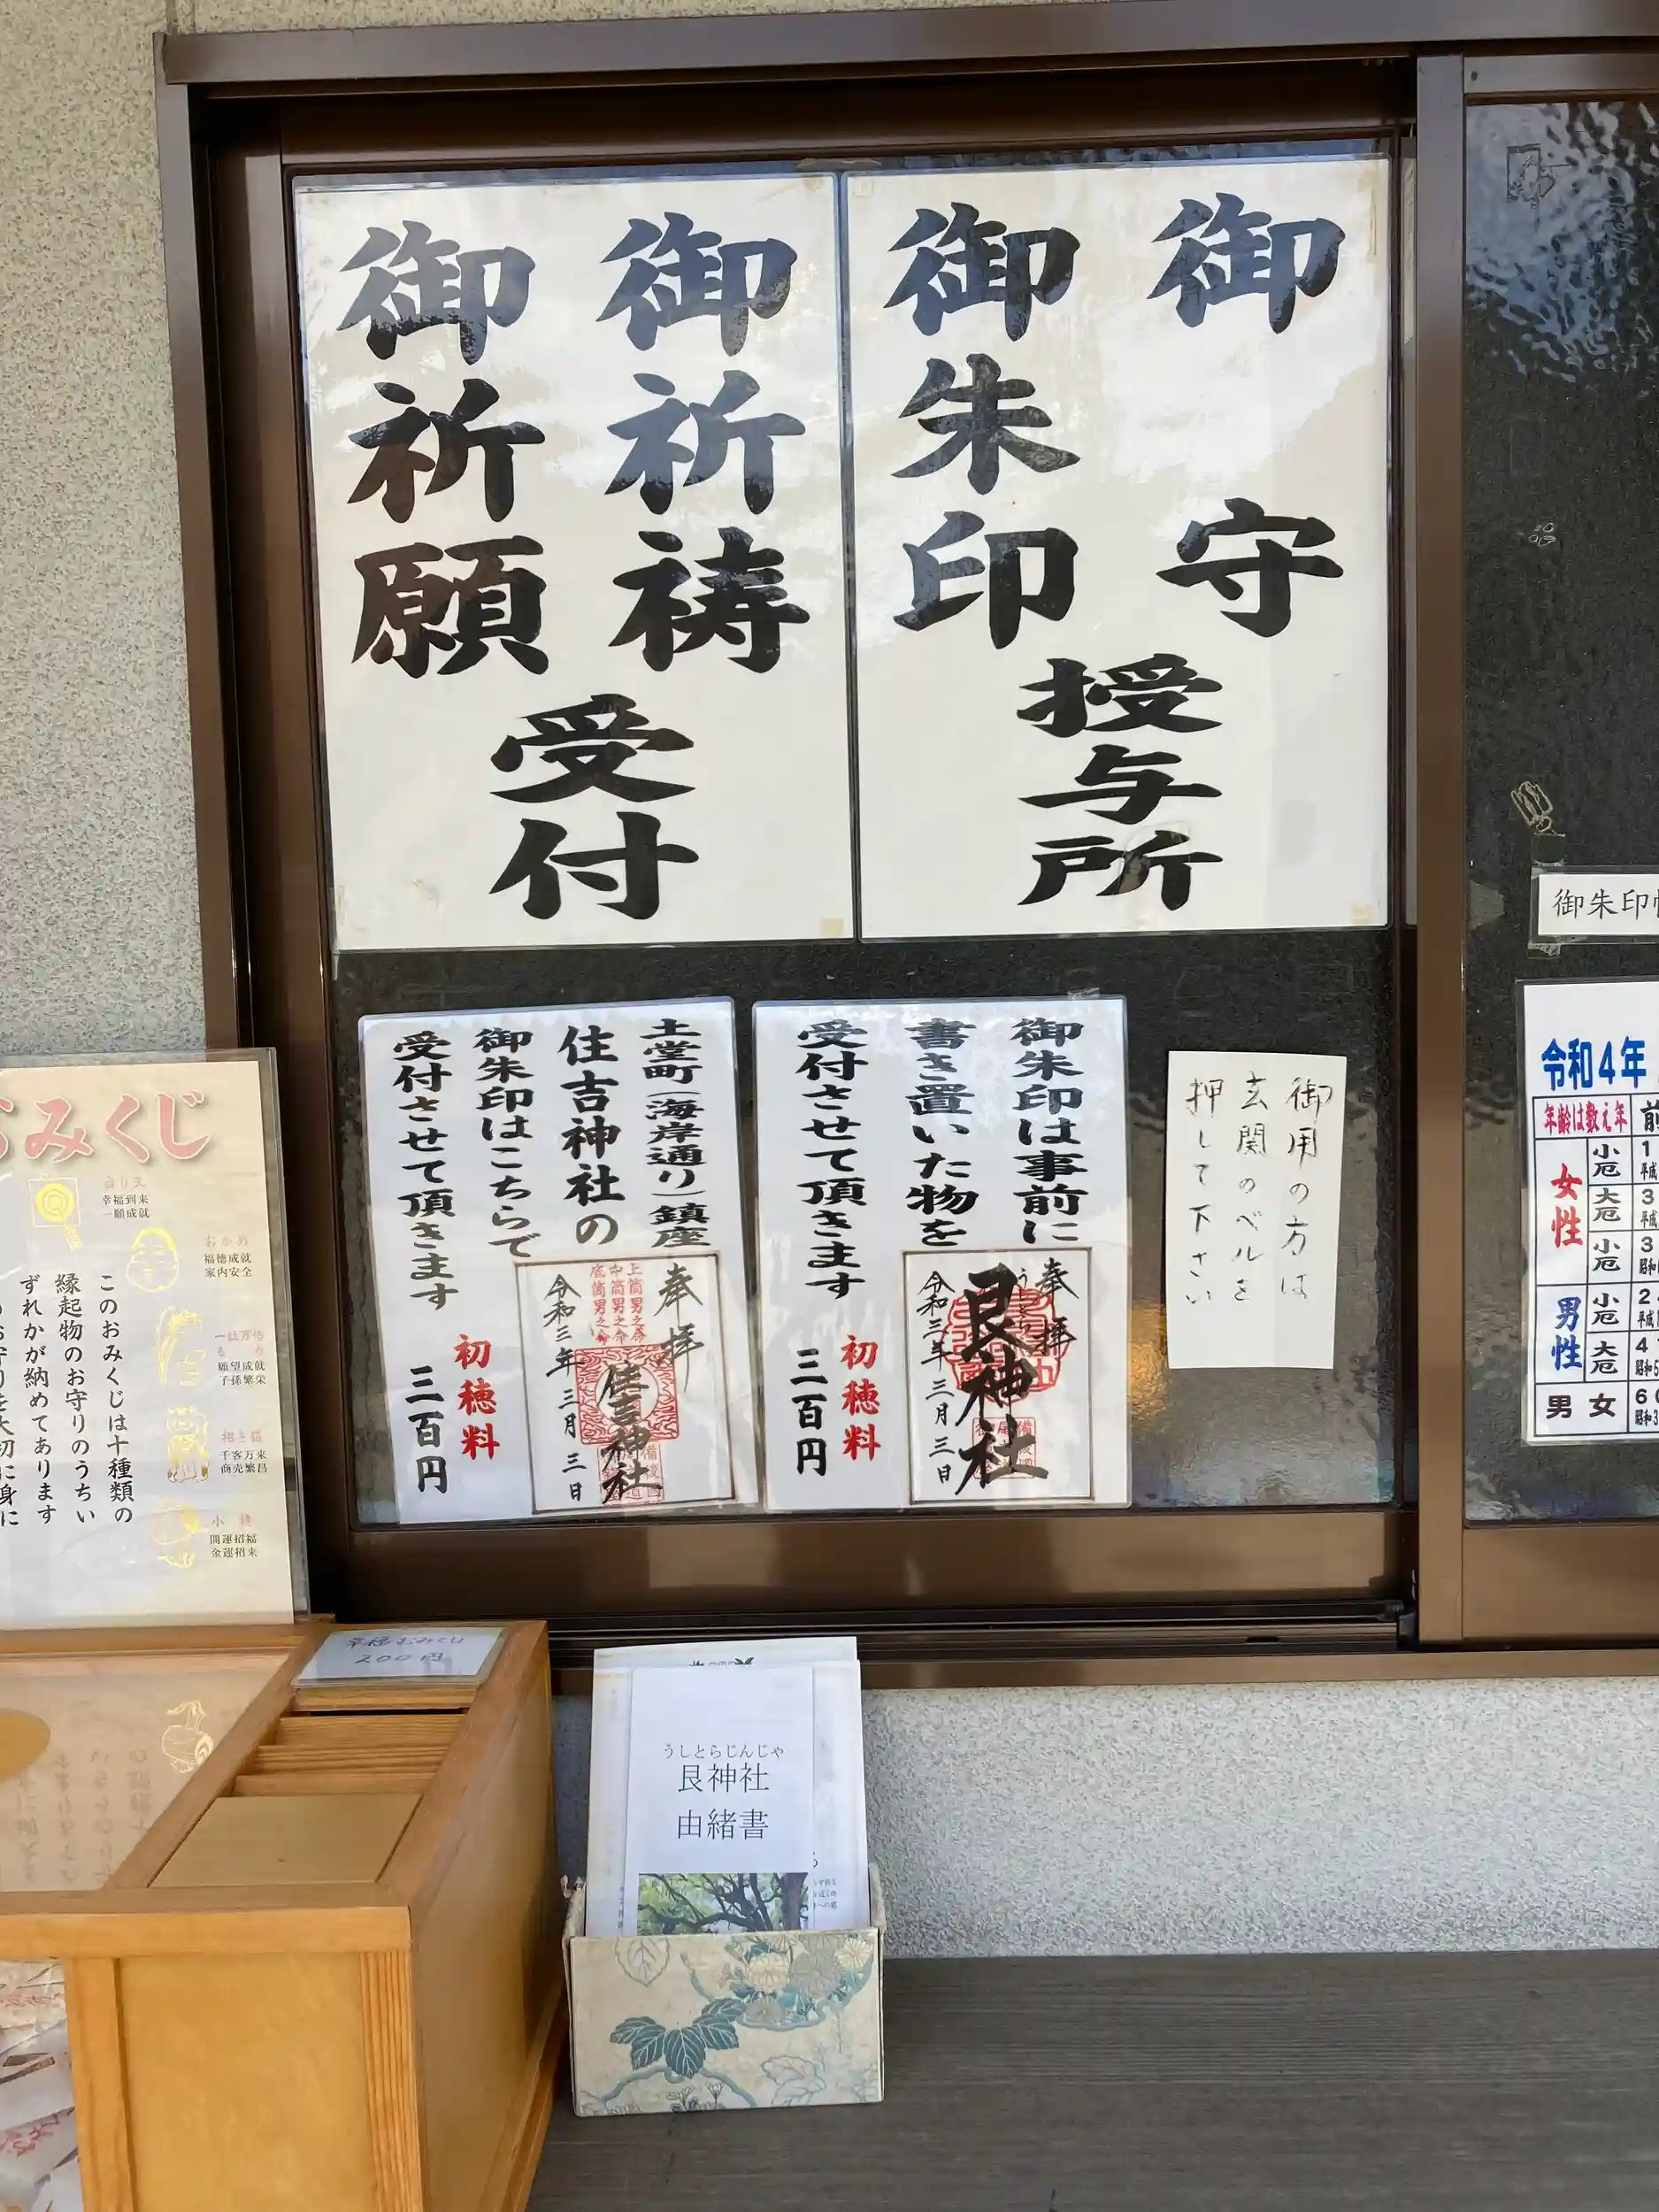 御守
御朱印
授与所
御祈祷
御祈願
受付
御用の方は
玄関のベルを
押して下さい
御朱印は事前に
書き置いた物を
受付させて頂きます
初穂料
三百円
奉拝
艮神社
令和三年三月三日
土堂町(海岸通り)鎮座
住吉神社の
御朱印はこちらで
受付させて頂きます
初穂料
三百円
奉拝
上筒男之命
中筒男之命
底筒男之命
住吉神社
令和三年三月三日
御朱印
令和4年
年齢は数え年
前
女性
小厄
大厄
小厄
男性
小厄
大厄
男女
おみくじ
幸福到来
一願成就
おかめ
福徳成就
家内安全
願望成就
子孫繁栄
招き猫
千客万来
商売繁昌
小槌
開運招福
金運招来
このおみくじは十種類の
縁起物のお守りのうちい
ずれかが納めてあります
幸福おみくじ
200円
うしとらじんじゃ
艮神社
由緒書